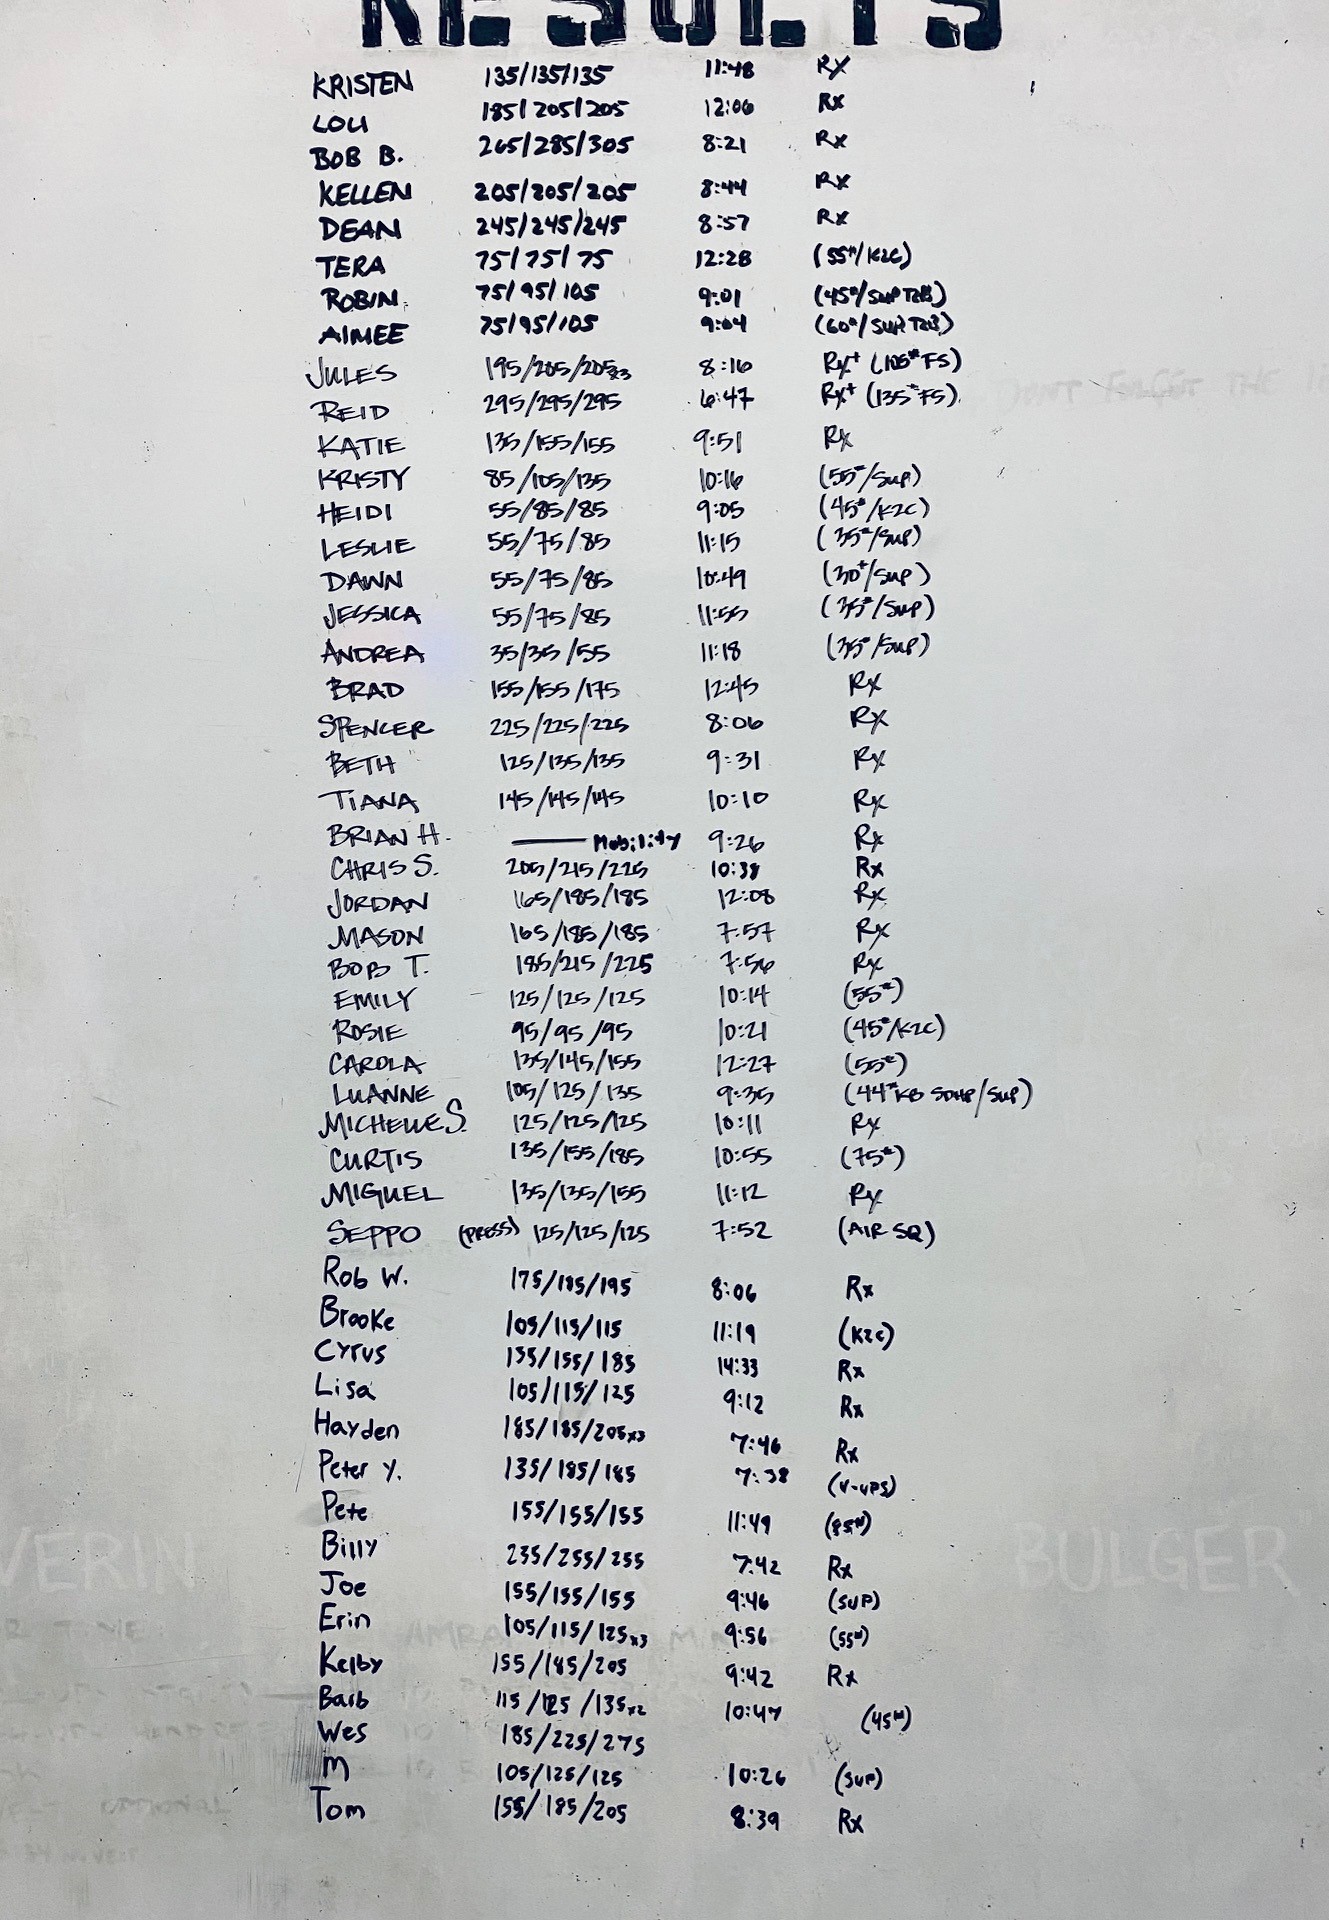 RESULTS
KRISTEN 135/135/135 11:48 Rx
LOU 185/205/205 12:06 Rx
BOB B. 265/285/305 8:21 Rx
KELLEN 205/205/205 8:44 Rx
DEAN 245/245/245 8:57 Rx
TERA 75/75/75 12:28 (55#/K2C)
ROBIN 75/95/105 9:01 (45#/SUP T2B)
AIMEE 75/95/105 9:04 (60#/SUP T2B)
JULES 195/205/205x3 8:16 Rx+ (105# FS)
REID 295/295/295 6:47 Rx+ (135# FS)
DONT FORGET THE
KATIE 135/155/155 9:51 Rx
KRISTY 85/105/135 10:16 (55#/SUP)
HEIDI 55/85/85 9:05 (45#/K2C)
LESLIE 55/75/85 11:15 (35#/SUP)
DAWN 55/75/85 10:49 (30#/SUP)
JESSICA 55/75/85 11:55 (35#/SUP)
ANDREA 35/35/55 11:18 (35#/SUP)
BRAD 155/155/175 12:45 Rx
SPENCER 225/225/225 8:06 Rx
BETH 125/135/135 9:31 Rx
TIANA 145/145/145 10:10 Rx
BRIAN H. —— Mobility 9:26 Rx
CHRIS S. 205/215/225 10:38 Rx
JORDAN 165/185/185 12:08 Rx
MASON 165/185/185 7:57 Rx
BOB T. 185/215/225 7:56 Rx
EMILY 125/125/125 10:14 (55#)
ROSIE 95/95/95 10:21 (45#/K2C)
CAROLA 135/145/155 12:27 (55#)
LUANNE 105/125/135 9:35 (44# KB SDHP/SUP)
MICHELLE S. 125/125/125 10:11 Rx
CURTIS 135/155/185 10:55 (75#)
MIGUEL 135/135/155 11:12 Rx
SEPPO (PRESS) 125/125/125 7:52 (AIR SQ)
Rob W. 175/185/195 8:06 Rx
Brooke 105/115/115 11:19 (K2C)
Cyrus 135/155/185 14:33 Rx
Lisa 105/115/125 9:12 Rx
Hayden 185/185/205x3 7:46 Rx
Peter Y. 135/185/185 7:38 (V-UPS)
Pete 155/155/155 11:49 (85#)
VERIN BULGER"
Billy 235/255/255 7:42 Rx
Joe 155/155/155 9:46 (SUP)
Erin 105/115/125x3 9:56 (55#)
Kelby 155/185/205 9:42 Rx
Barb 115/125/135x2 10:47 (45#)
Wes 185/225/275
M 105/125/125 10:26 (SUP)
Tom 155/185/205 8:39 Rx